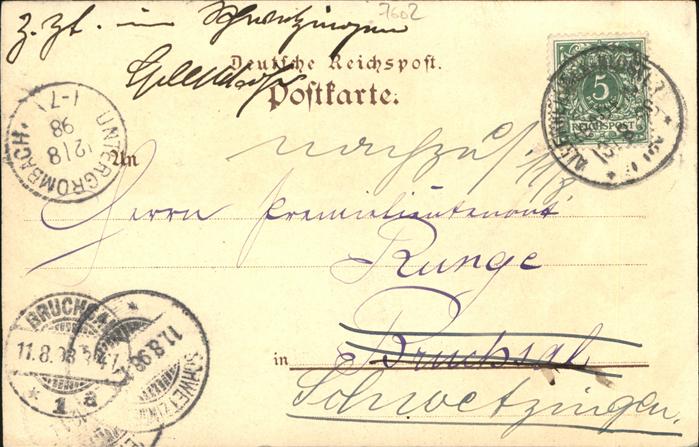 7602
z. Zt. in Schwetzingen
Deutsche Reichspost.
Postkarte.
5
REICHSPOST
UNTERGROMBACH.
12|8
98
1-7
An
Herrn Premierlieutenant
Runge
in Bruchsal
Schwetzingen.
BRUCHSAL
11.8.98
* 1 a
SCHWETZINGEN
11.8.98